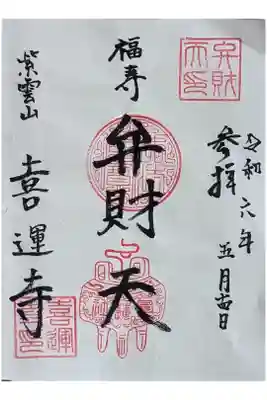 弁財天印
令和六年五月日
参拝
福寿
弁財天
紫雲山
喜運寺
喜運寺印